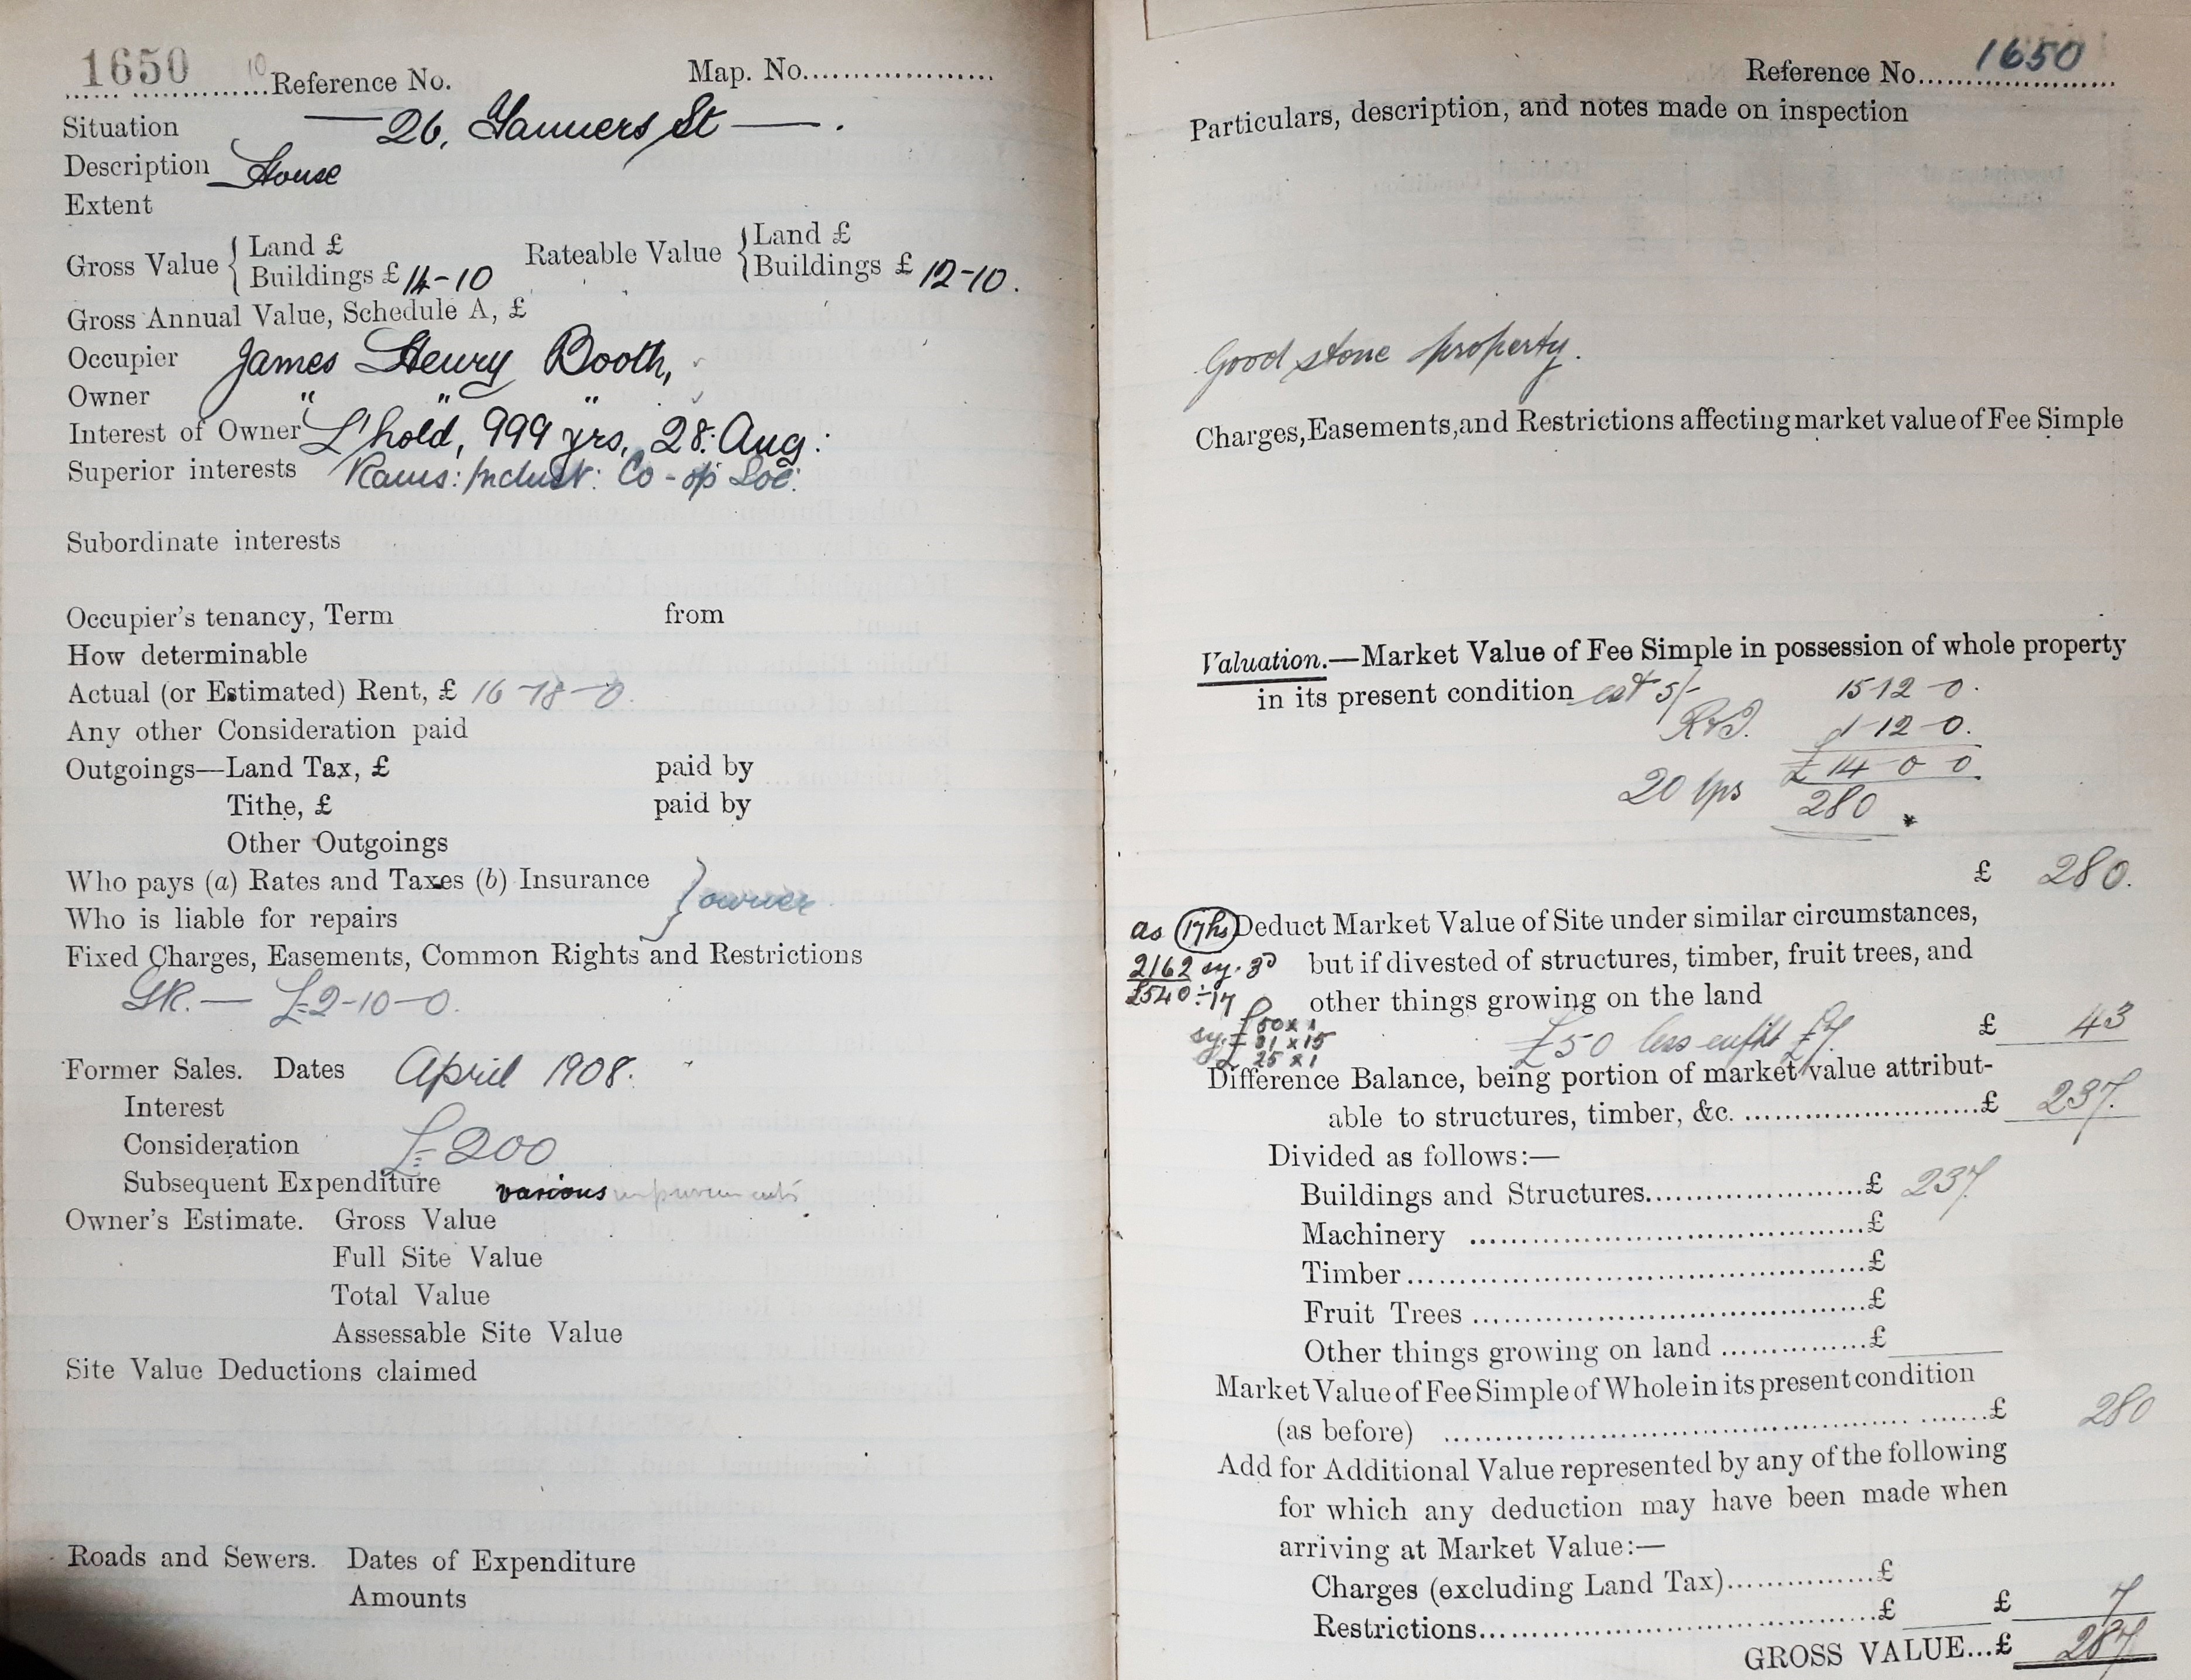 1650 10 Reference No. Map. No....................
Situation — 26, Tanners St — .
Description House
Extent
Gross Value { Land £ Rateable Value { Land £
Buildings £ 14-10 Buildings £ 12-10.
Gross Annual Value, Schedule A, £
Occupier James Henry Booth,
Owner " " "
Interest of Owner L'hold, 999 yrs, 28: Aug:
Superior interests Rams: Indust: Co-op Soc:
Subordinate interests
Occupier's tenancy, Term from
How determinable
Actual (or Estimated) Rent, £ 16-18-0.
Any other Consideration paid
Outgoings—Land Tax, £ paid by
Tithe, £ paid by
Other Outgoings
Who pays (a) Rates and Taxes (b) Insurance } owner
Who is liable for repairs
Fixed Charges, Easements, Common Rights and Restrictions
GR. — £2-10-0.
Former Sales. Dates April 1908.
Interest
Consideration £200
Subsequent Expenditure various improvements
Owner's Estimate. Gross Value
Full Site Value
Total Value
Assessable Site Value
Site Value Deductions claimed
Roads and Sewers. Dates of Expenditure
Amounts
Reference No. 1650
Particulars, description, and notes made on inspection
Good stone property.
Charges, Easements, and Restrictions affecting market value of Fee Simple
Valuation.—Market Value of Fee Simple in possession of whole property
in its present condition est 5/- 15 12 - 0.
1-12-0.
£ 14 0 0
20 yps 280
£ 280.
as 17 hs Deduct Market Value of Site under similar circumstances,
2162 sy. 3D but if divested of structures, timber, fruit trees, and
£540 ÷ 17 other things growing on the land
£50 x 1
£31 x 15 £50 less £7 £ 43
£ 25 x 1
Difference Balance, being portion of market value attribut-
able to structures, timber, &c. ........................£ 237.
Divided as follows:—
Buildings and Structures......................£ 237.
Machinery ........................................£
Timber................................................£
Fruit Trees .........................................£
Other things growing on land ...............£
Market Value of Fee Simple of Whole in its present condition
(as before) ..................................................£ 280
Add for Additional Value represented by any of the following
for which any deduction may have been made when
arriving at Market Value:—
Charges (excluding Land Tax)...............£
Restrictions..........................................£ £ 7
GROSS VALUE...£ 287